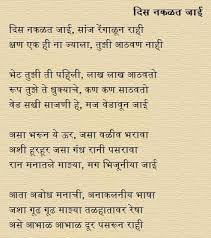 दिस नकळत जाई
दिस नकळत जाई, सांज रेंगाळून राही
क्षण एक ही ना ज्याला, तुझी आठवण नाही
भेट तुझी ती पहिली, लाख लाख आठवतो
रूप तुझे ते धुक्याचे, कण कण साठवतो
वेड सखी साजणी हे, मज वेडावून जाई
असा भरून ये ऊर, जसा वळीव भरावा
अशी हूरहूर जसा गंध रानी पसरावा
रान मनातले माझ्या, मग भिजूनीया जाई
आता अबोध मनाची, अनाकलनीय भाषा
जशा गूढ गूढ माझ्या तळहातावर रेषा
असे आभाळ आभाळ दूर पसरून राही